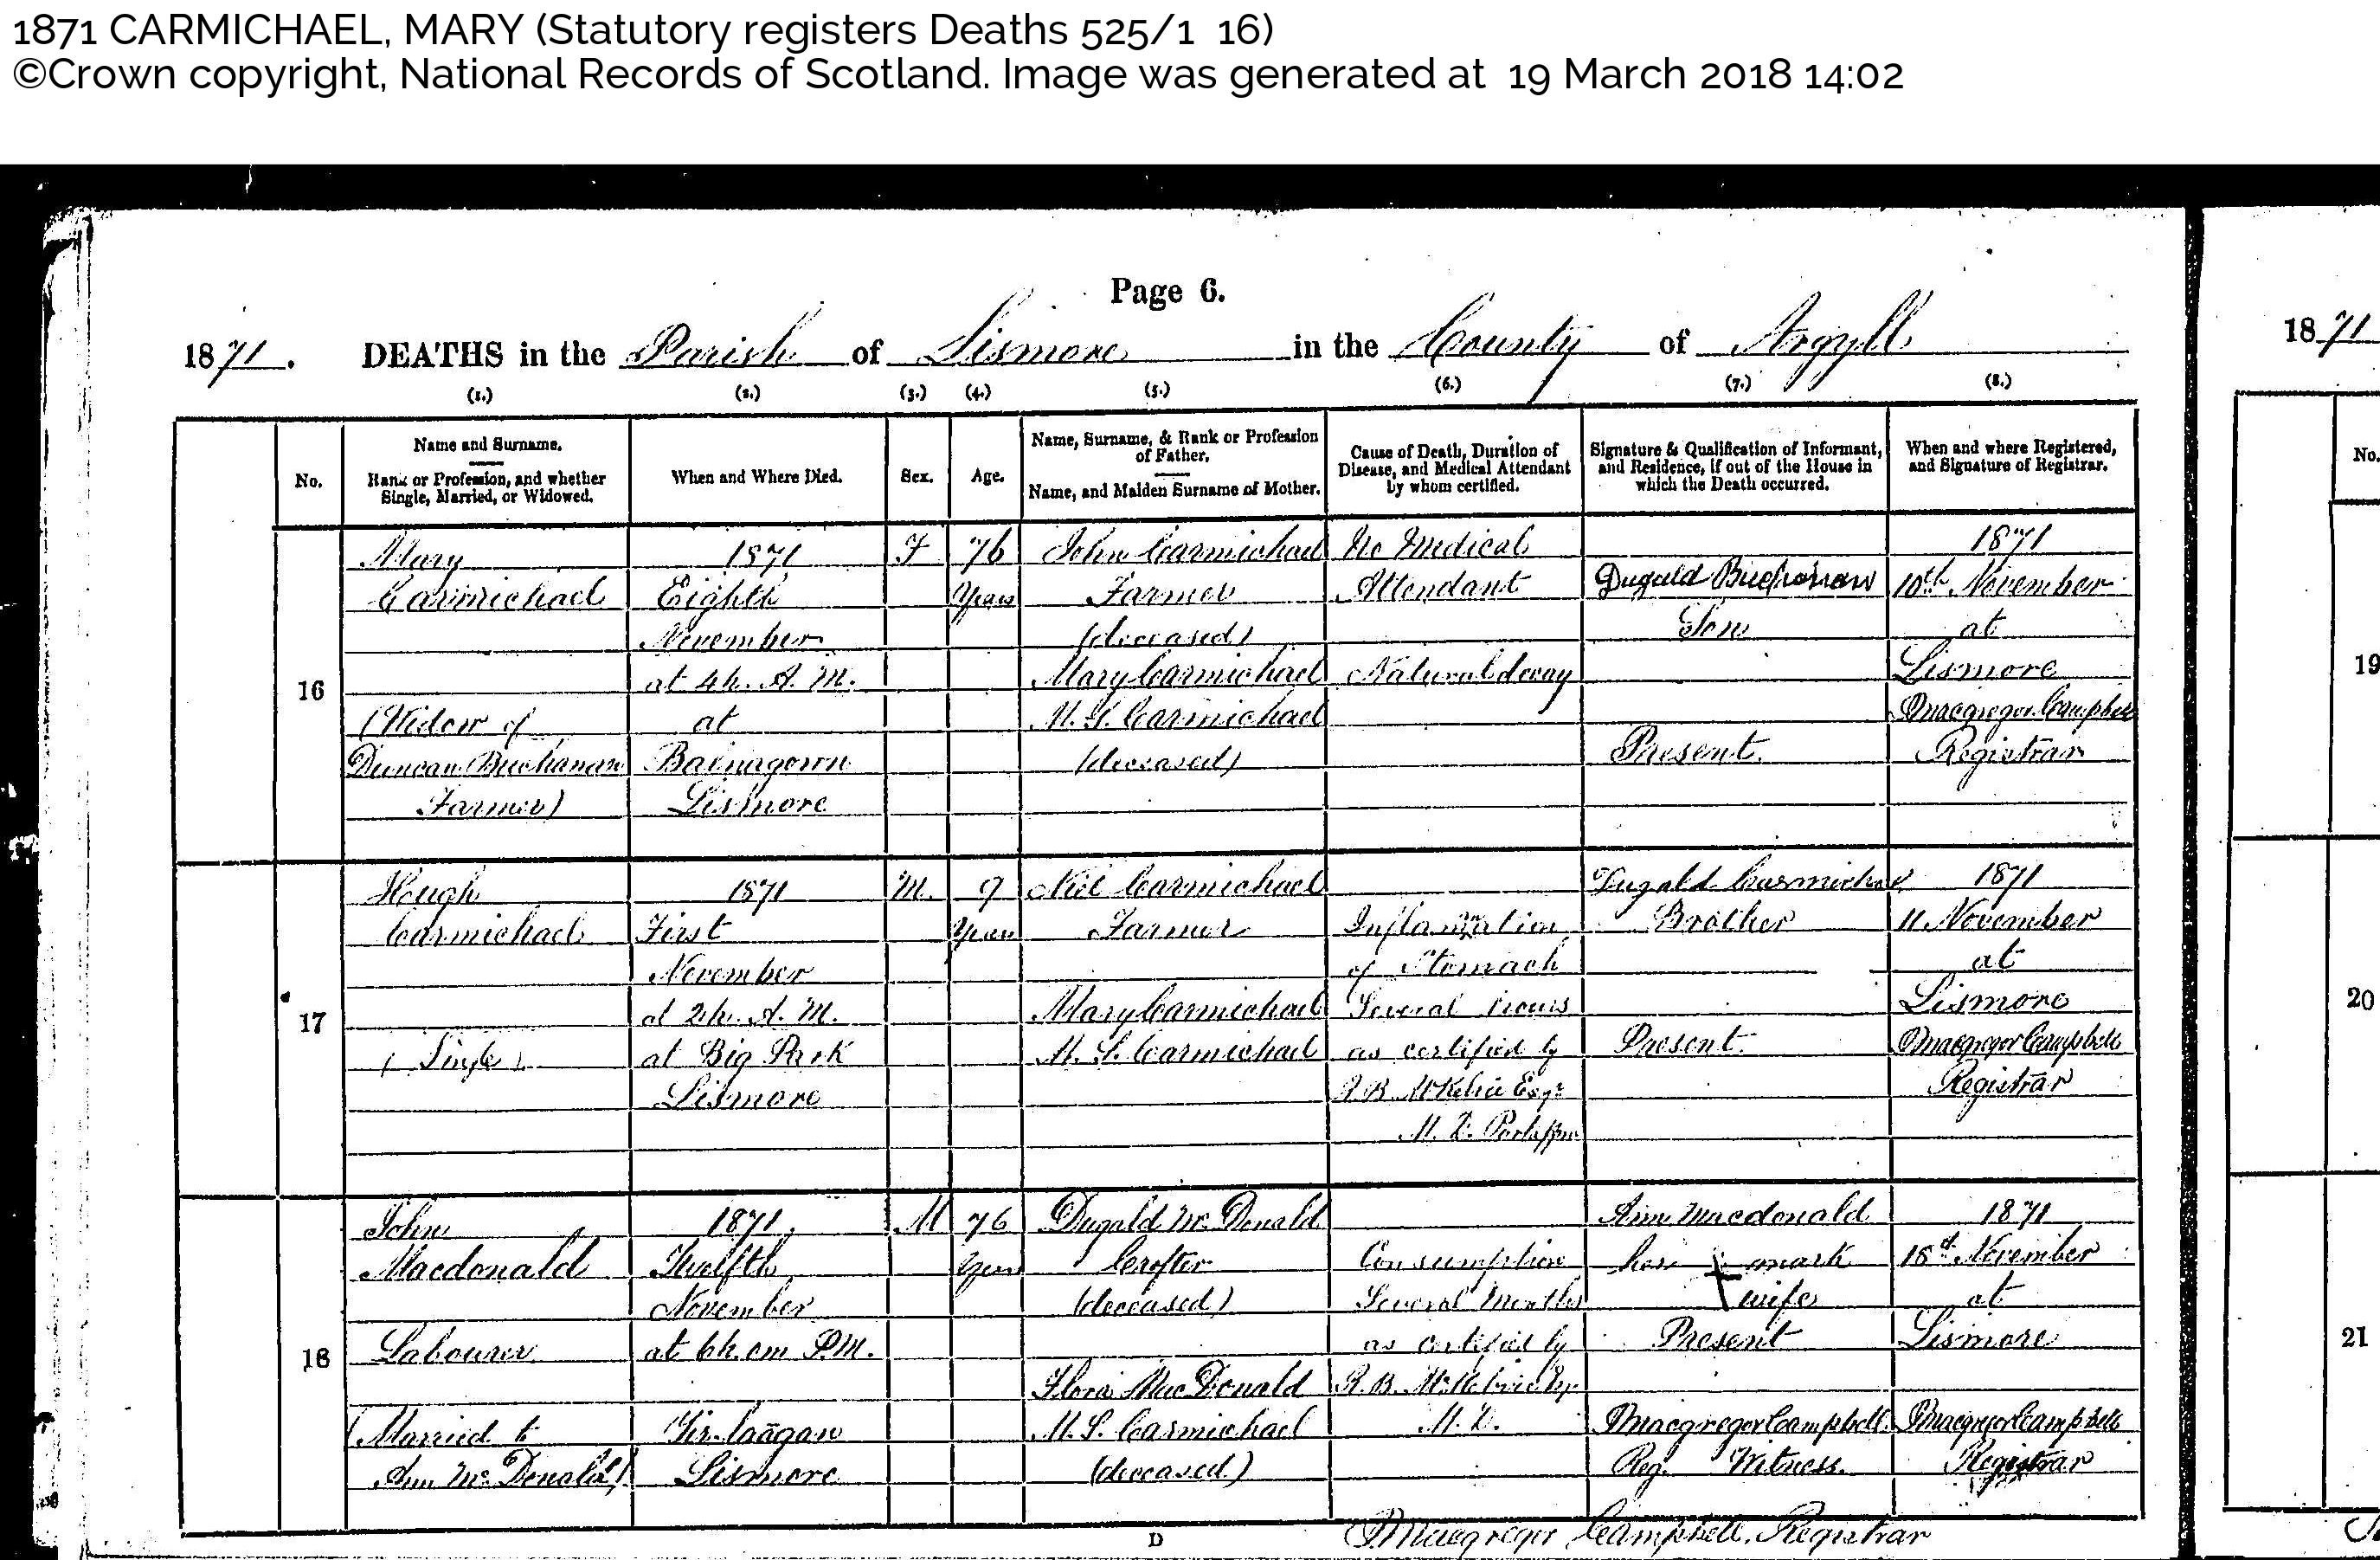 1871 CARMICHAEL, MARY (Statutory registers Deaths 525/1 16)
©Crown copyright, National Records of Scotland. Image was generated at 19 March 2018 14:02
Page 6.
1871. DEATHS in the Parish of Lismore in the County of Argyll
1871
(1.) (2.) (3.) (4.) (5.) (6.) (7.) (8.)
No.
Name and Surname.
Rank or Profession, and whether
Single, Married, or Widowed.
When and Where Died.
Sex.
Age.
Name, Surname, & Rank or Profession
of Father.
Name, and Maiden Surname of Mother.
Cause of Death, Duration of
Disease, and Medical Attendant
by whom certified.
Signature & Qualification of Informant,
and Residence, if out of the House in
which the Death occurred.
When and where Registered,
and Signature of Registrar.
No.
16
Mary
Carmichael
(Widow of
Duncan Buchanan
Farmer)
1871
Eighth
November
at 4h. A.M.
at
Balnagown
Lismore
F
76
Years
John Carmichael
Farmer
(deceased)
Mary Carmichael
M.S. Carmichael
(deceased)
No Medical
Attendant
Natural decay
Dugald Buchanan
Son
Present.
1871
10th November
at
Lismore
Macgregor Campbell
Registrar
19
17
Hugh
Carmichael
(Single)
1871
First
November
at 2h. A.M.
at Big Park
Lismore
M.
9
Years
Niel Carmichael
Farmer
Mary Carmichael
M.S. Carmichael
Inflamation
of Stomach
Several hours
as certified by
Esqr
M.D.
Dugald Carmichael
Brother
Present.
1871
11 November
at
Lismore
Macgregor Campbell
Registrar
20
18
John
Macdonald
Labourer
(Married to
Ann McDonald)
1871.
Twelfth
November
at 6h. P.M.
Lismore
M
76
Years
Dugald McDonald
Crofter
(deceased)
Flora MacDonald
M.S. Carmichael
(deceased)
Consumption
Several Months
as certified by
M.D.
Ann Macdonald
her + mark
wife
Present
Macgregor Campbell
Reg. Witness.
1871
November
at
Lismore
Macgregor Campbell
Registrar
21
D
Macgregor Campbell. Registrar